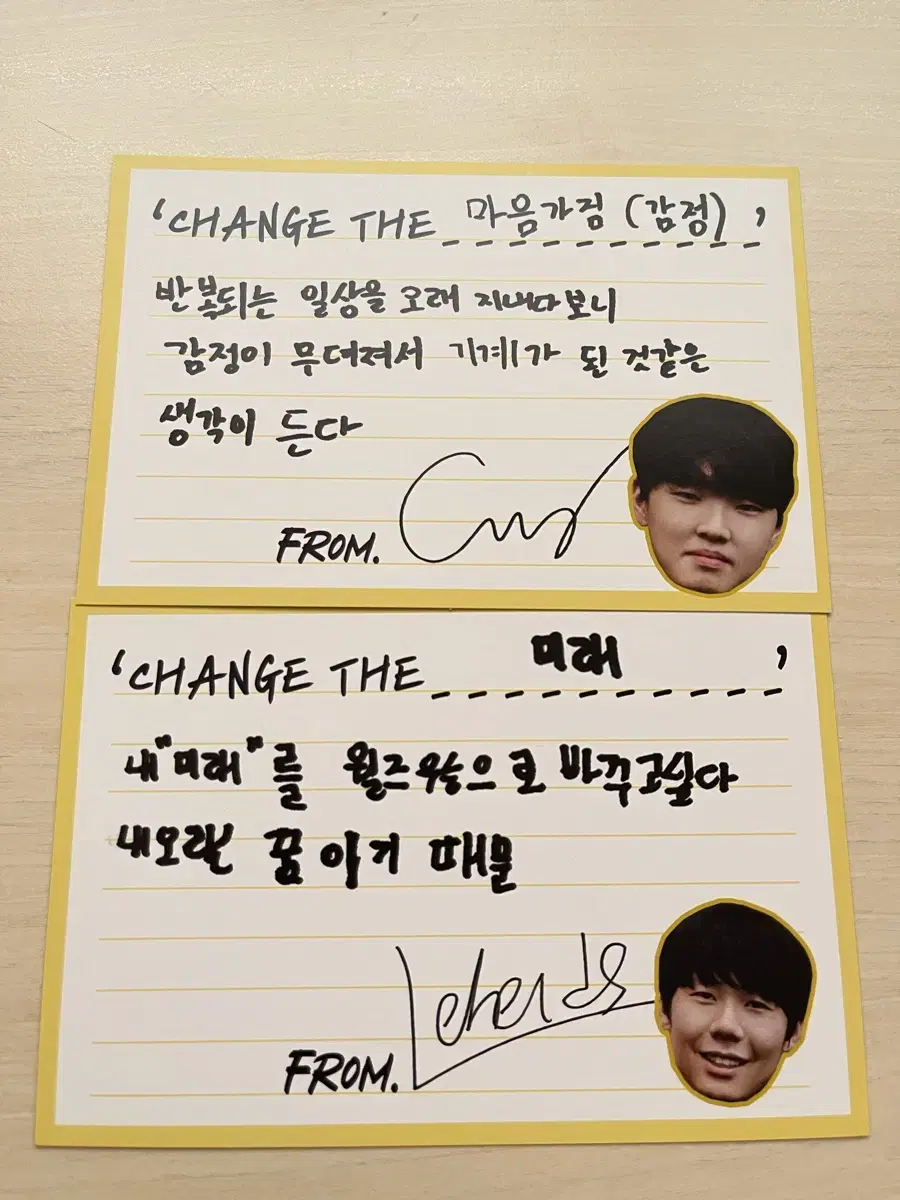 'CHANGE THE 마음가짐 (감정)'
반복되는 일상을 오래 지내다보니
감정이 무뎌져서 기계가 된 것같은
생각이 든다
FROM.
'CHANGE THE 미래'
내"미래"를 월즈우승으로 바꾸고싶다
내오랜 꿈이기 때문
FROM. Lehends